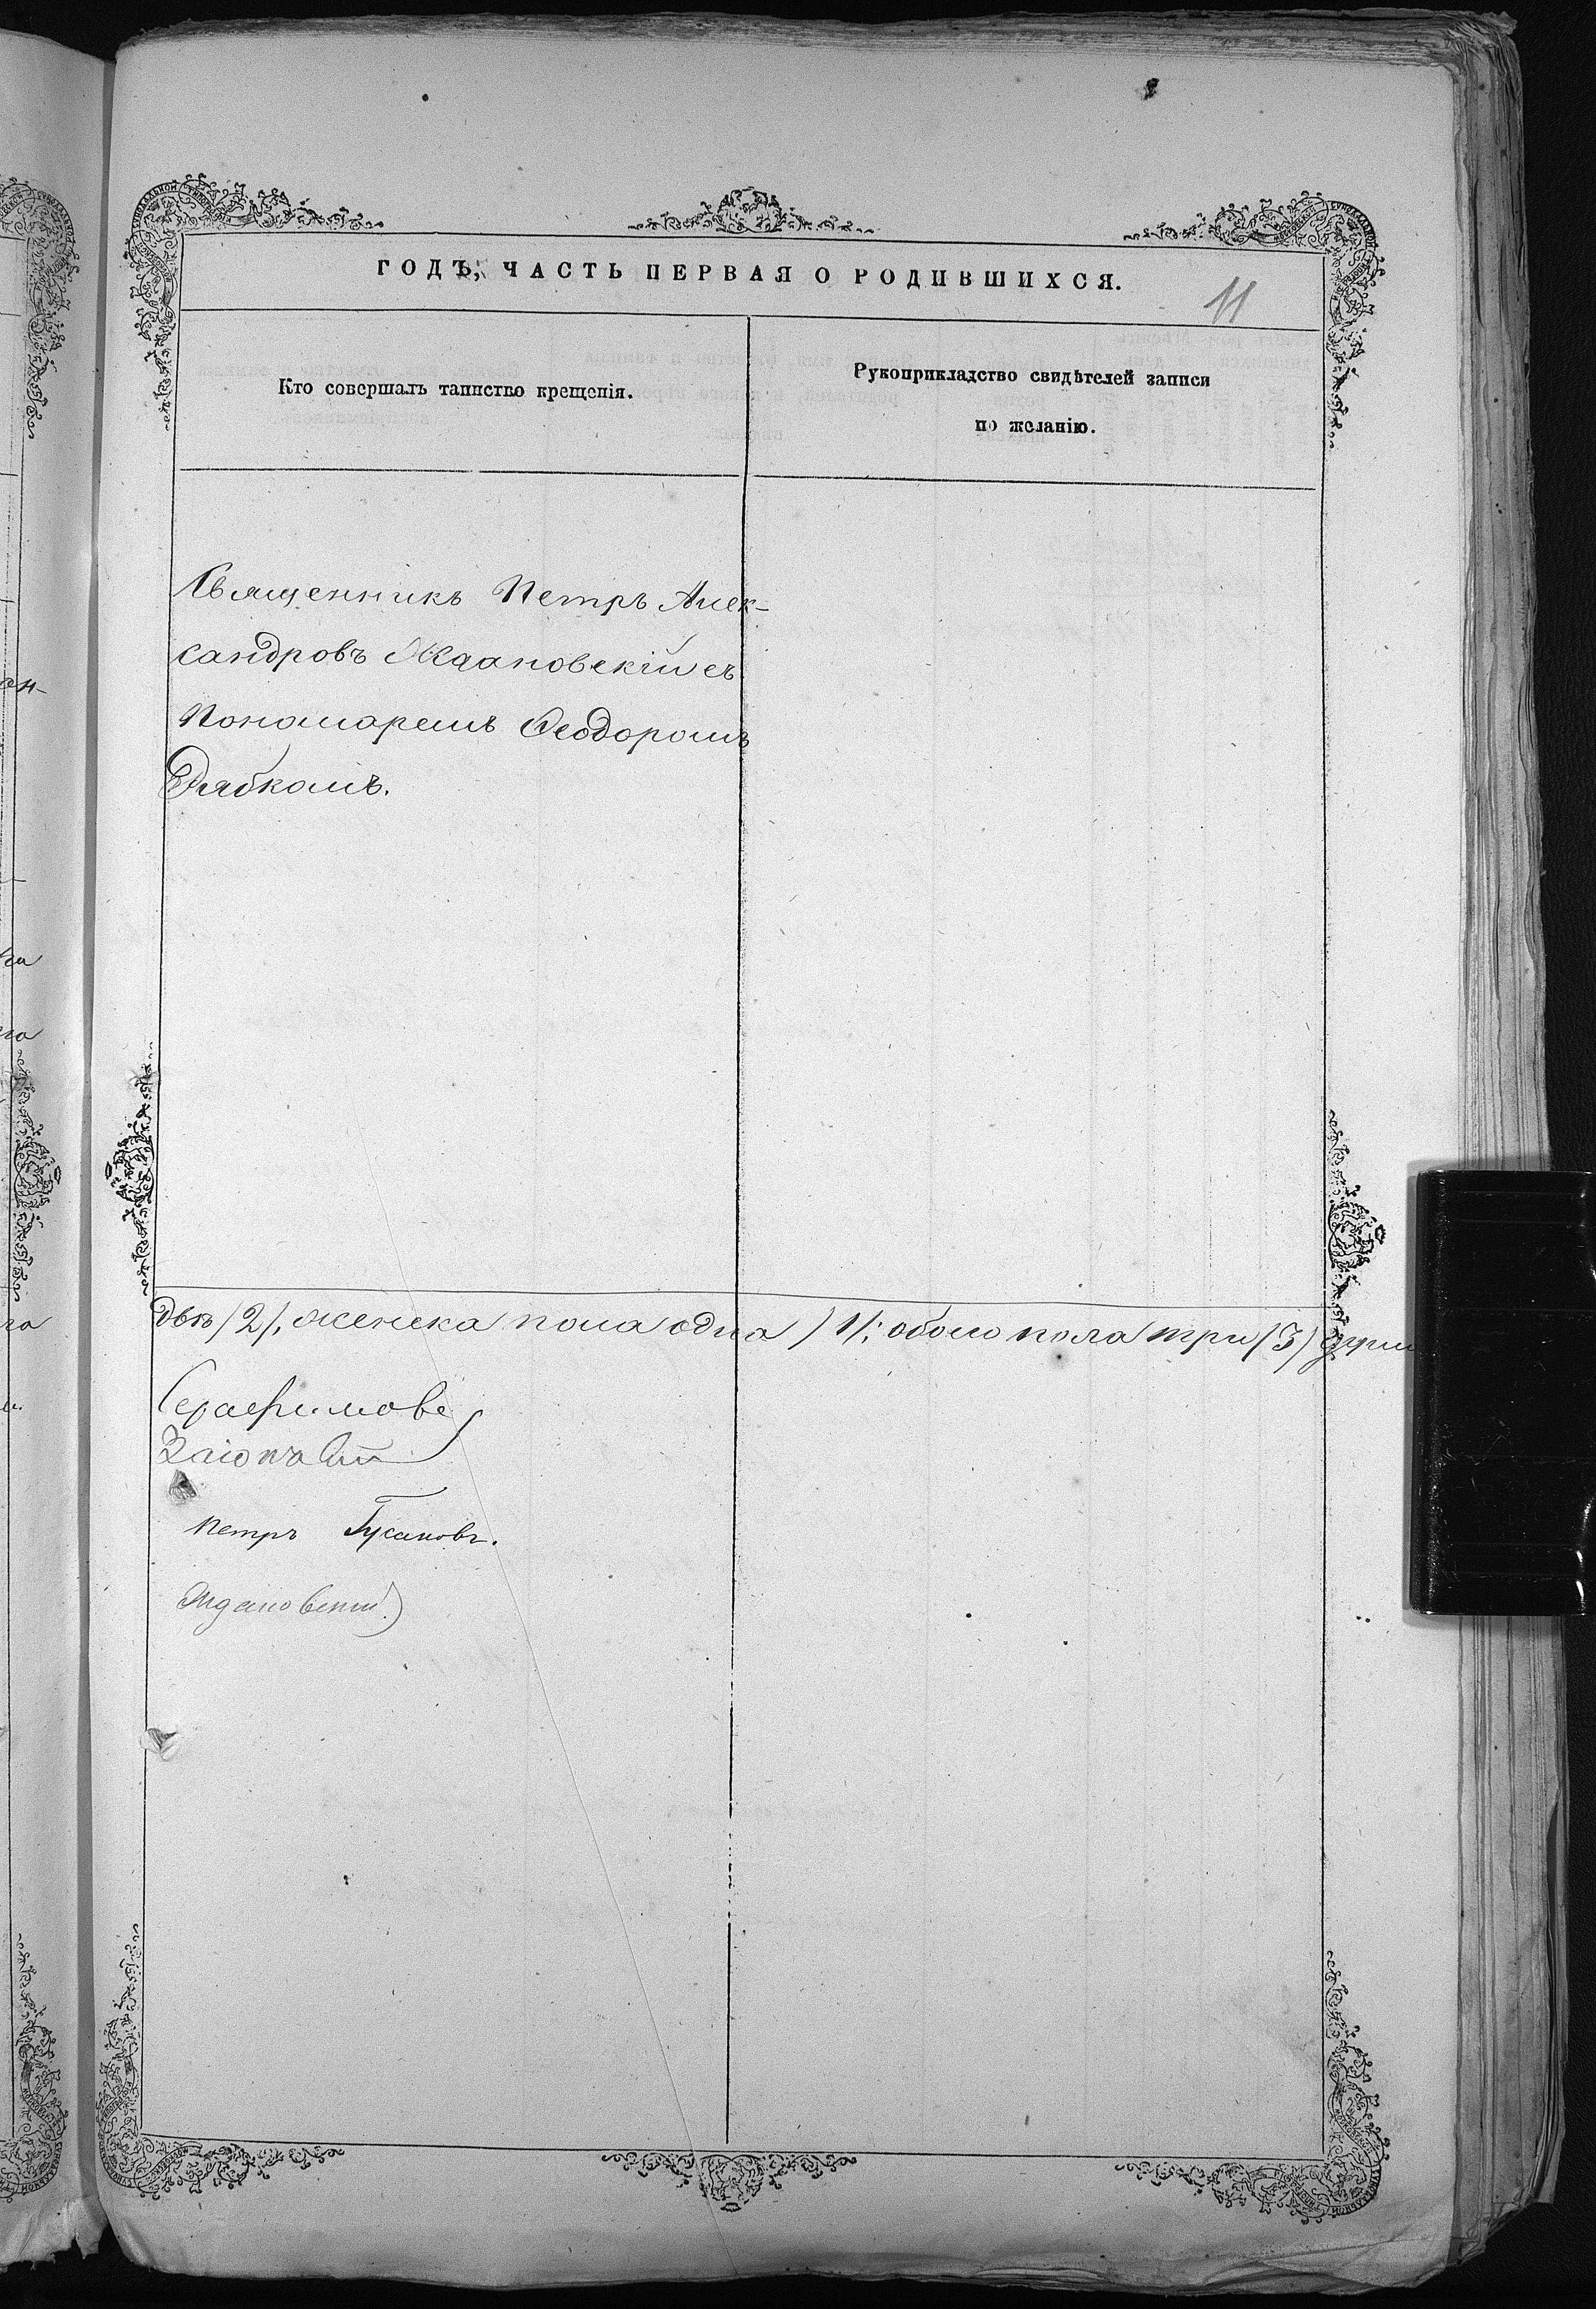 ГОДЪ, ЧАСТЬ ПЕРВАЯ О РОДИВШИХСЯ.
11
Кто совершалъ таинство крещенія.
Рукоприкладство свидѣтелей записи
по желанію.
Священникъ Петръ Алек-
сандровъ съ
Пономаремъ Ѳеодоромъ
Рябкомъ.
двѣ /2/, женска пола одна /1/; обоего пола три /3/ души
Петръ Гусаковъ.
Ждановскій